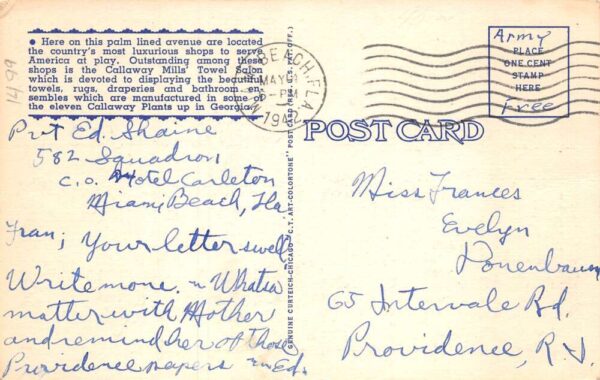 • Here on this palm lined avenue are located
the country's most luxurious shops to serve
America at play. Outstanding among these
shops is the Callaway Mills' Towel Salon
which is devoted to displaying the beautiful
towels, rugs, draperies and bathroom en-
sembles which are manufactured in some of
the eleven Callaway Plants up in Georgia.
1499
BEACH, FLA
MAY
PM
1942
Army
PLACE
ONE CENT
STAMP
HERE
Free
POST CARD
GENUINE CURTEICH-CHICAGO "C.T. ART-COLORTONE" POST CARD (REG. U.S. PAT. OFF.)
Pvt Ed. Shaine
582 Squadron
c.o. Hotel Carleton
Miami Beach, Fla
Fran; Your letter swell
Write more. Whats
matter with Mother
and remind her of those
Providence papers Ed.
Miss Frances
Evelyn
65 Intervale Rd.
Providence, R.I.